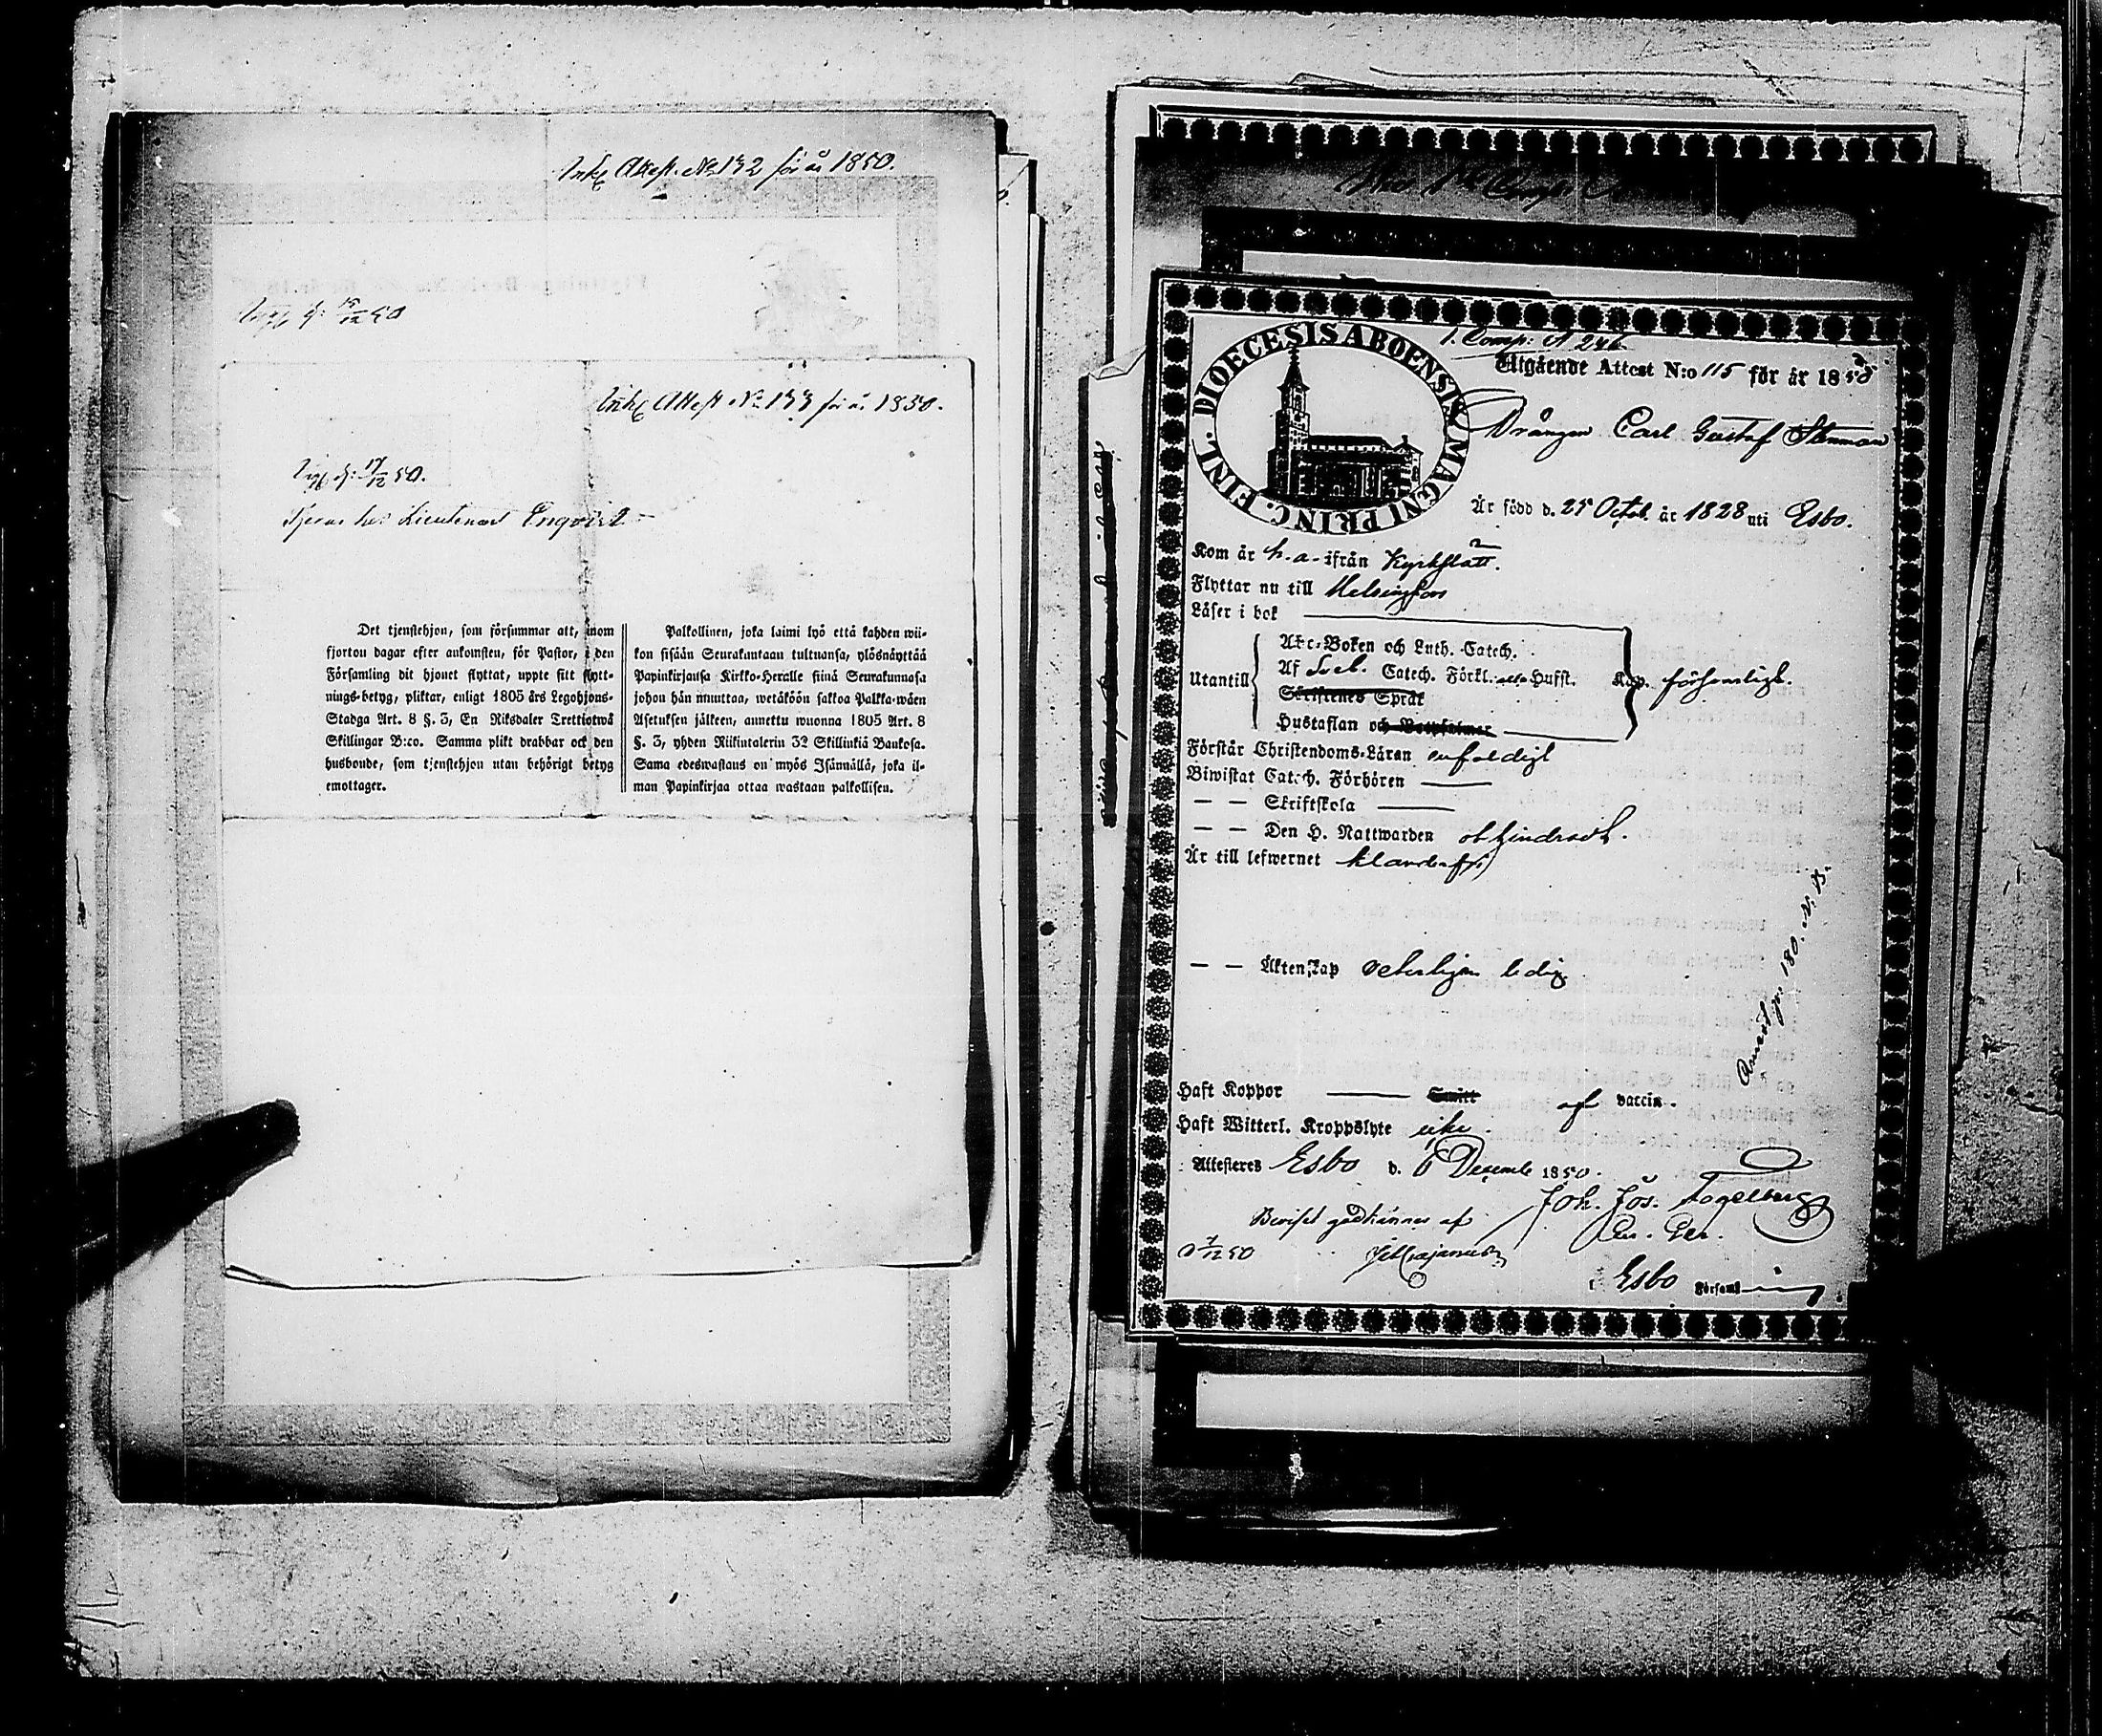 Attest. No 132 för år 1850.
12 50
Attest No 133 för år 1850.
17/12 50.
hos Lieutenant Enqvist
Det tjenstehjon, som försummar att, inom
fjorton dagar efter ankomsten, för Pastor, i den
Församling dit hjonet flyttat, uppte sitt flytt-
nings-betyg, pliktar, enligt 1805 års Legohjons-
Stadga Art. 8 §. 3, En Riksdaler Trettiotwå
Skillingar B:co. Samma plikt drabbar ock den
husbonde, som tjenstehjon utan behörigt betyg
emottager.
Palkollinen, joka laimi lyö että kahden wii-
kon sisään Seurakuntaan tultuansa, ylösnäyttää
Papinkirjansa Kirkko-Heralle siinä Seurakunnasa
johon hän muuttaa, wetäköön sakkoa Palkka-wäen
Asetuksen jälkeen, annettu wuonna 1805 Art. 8
§. 3, yhden Riikintalerin 32 Skillinkiä Bankosa.
Sama edeswastaus on myös Isännällä, joka il-
man Papinkirjaa ottaa wastaan palkollisen.
DIOECESIS ABOENSIS MAGNI PRINC. FINL.
1. Comp: A 246
Utgående Attest N:o 115 för år 1850
Drängen Carl Gustaf Stenman
Är född d. 25 Octob. år 1828 uti Esbo.
Kom år h. a. ifrån Kyrkslätt.
Flyttar nu till Helsingfors
Läser i bok
Utantill
Abc-Boken och Luth. Catech.
Af Sveb. Catech. Förkl. Hufst.
Skriftenes Språk
Hustaflan och Botpsalmer
Kap. försvarligt.
Förstår Christendoms-Läran enfaldigt
Biwistat Catech. Förhören
— — Skriftskola
— — Den H. Nattwarden ohindradt.
Är till lefwernet klanderfri
— — Äktenskap veterligen ledig
Haft Koppor Smitt af vaccin.
Haft Witterl. Kroppslyte icke.
Attesteras Esbo d. 6 Decemb 1850.
Joh. Jos. Fogelberg
Beviset godkännes af
7/12 50
Esbo Församling.
180. N. 13.